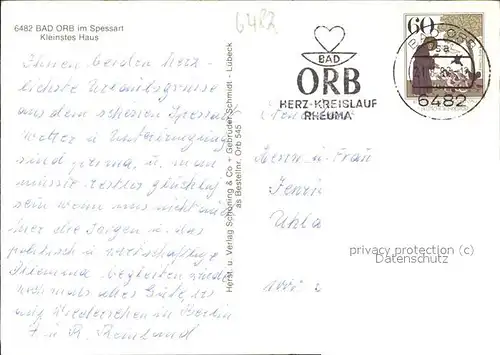 6482
6482 BAD ORB im Spessart
Kleinstes Haus
Ihnen beiden herz-
lichste Urlaubsgrüsse
aus dem schönen Spessart
Wetter u Unterbringung
sind prima, u. man
müsste restlos glücklich
sein wenn uns nicht auch
hier die Sorgen u. das
politisch u wirtschaftliche
Dilemma begleiten würde
noch mals alles Gute,
auf Wiedersehen in Berlin
Herst. u. Verlag Schöning & Co + Gebrüder Schmidt - Lübeck
as Bestellnr. Orb 545
BAD
ORB
HERZ-KREISLAUF
RHEUMA
60
BAD ORB
6482
Herrn und Frau
privacy protection (c)
Datenschutz